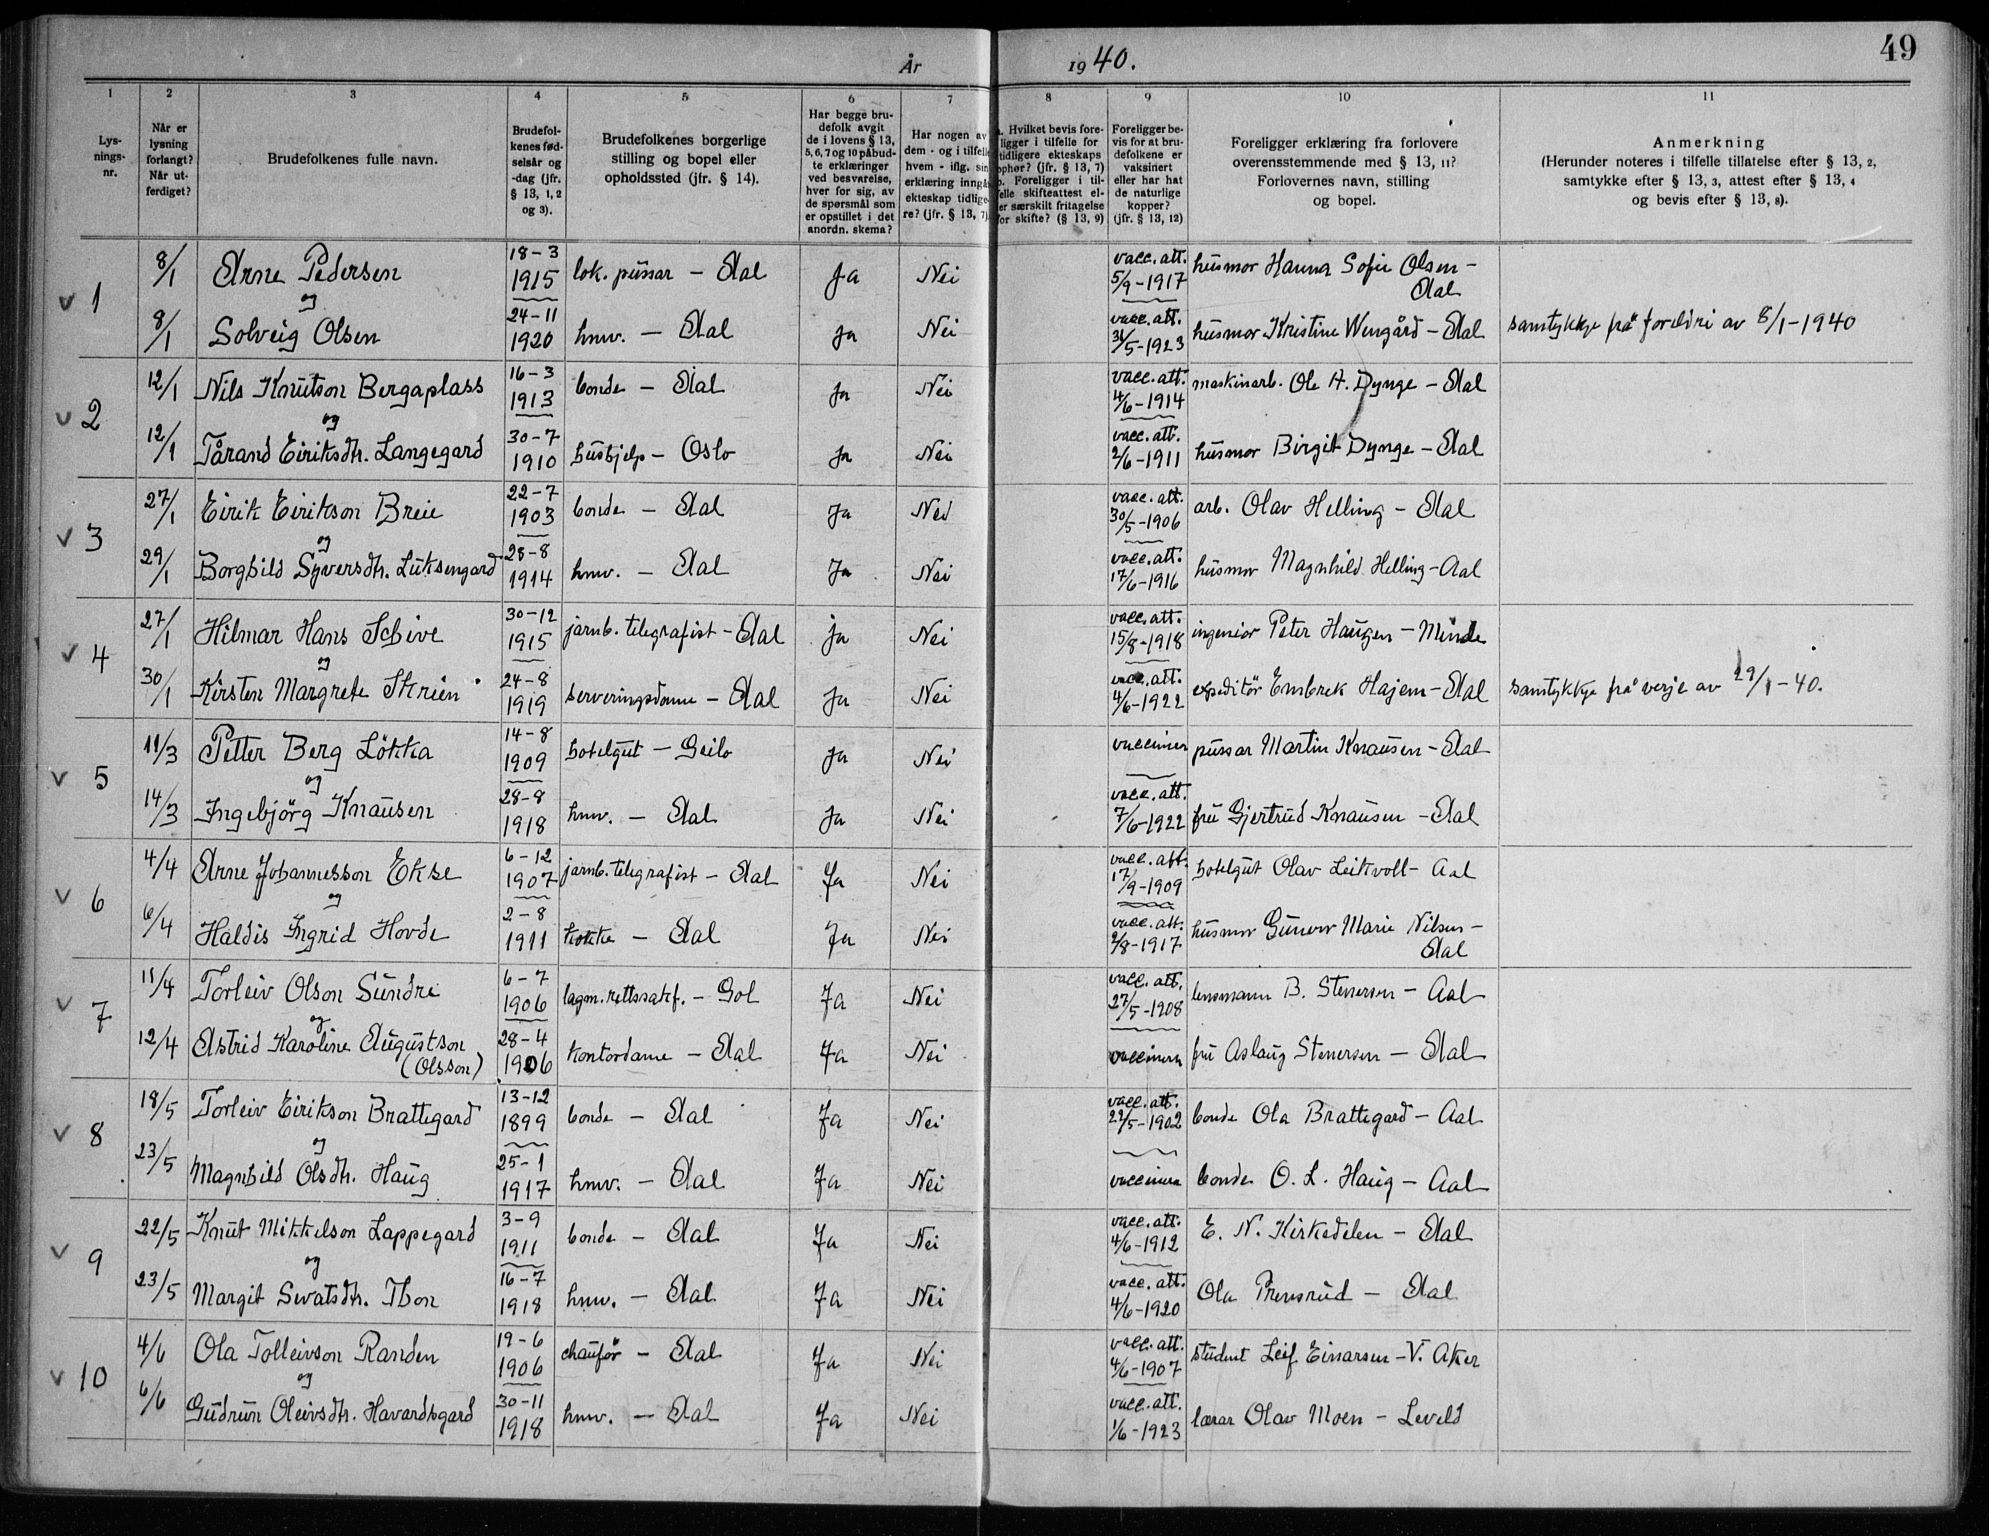 År 1940. 49
1 2 3 4 5 6 7 8 9 10 11
Lysningsnr.
Når er lysning forlangt? Når utferdiget?
Brudefolkenes fulle navn.
Brudefolkenes fødselsår og -dag (jfr. § 13, 1, 2 og 3).
Brudefolkenes borgerlige stilling og bopel eller opholdssted (jfr. § 14).
Har begge brudefolk avgit de i lovens § 13, 5, 6, 7 og 10 påbudte erklæringer ved besvarelse, hver for sig, av de spørsmål som er opstillet i det anordn. skema?
Har nogen av dem - og i tilfelle hvem - iflg. sin erklæring inngå ekteskap tidligere? (jfr. § 13, 7).
a. Hvilket bevis foreligger i tilfelle for tidligere ekteskaps ophør? (jfr. § 13, 7) b. Foreligger i tilfelle skifteattest eller særskilt fritagelse for skifte? (§ 13, 9)
Foreligger bevis for at brudefolkene er vaksinert eller har hat de naturlige kopper? (jfr. § 13, 12)
Foreligger erklæring fra forlovere overensstemmende med § 13, 11? Forlovernes navn, stilling og bopel.
Anmerkning (Herunder noteres i tilfelle tillatelse efter § 13, 2, samtykke efter § 13, 3, attest efter § 13, 4 og bevis efter § 13, 8).
v 1 8/1 Arne Pedersen 18-3 1915 lok. pussar - Aal Ja Nei vacc. att. 5/9-1917 husmor Hanna Sofie Olsen - Aal
og
8/1 Solveig Olsen 24-11 1920 hmv. - Aal Ja Nei vacc. att. 31/5-1923 husmor Kristine Wengård - Aal samtykkje frå foreldri av 8/1-1940
v 2 12/1 Nils Knutson Bergaplass 16-3 1913 bonde - Aal Ja Nei vacc. att. 4/6-1914 maskinarb. Ole H. Dynge - Aal
og
12/1 Tårand Eiriksdtr. Langegard 30-7 1910 hushjelp - Oslo Ja Nei vacc. att. 2/6-1911 husmor Birgit Dynge - Aal
v 3 27/1 Eirik Eirikson Breie 22-7 1903 bonde - Aal Ja Nei vacc. att. 30/5-1906 arb. Olav Helling - Aal
og
29/1 Borghild Syversdtr. Luksengard 28-8 1914 hmv. - Aal Ja Nei vacc. att. 17/6-1916 husmor Magnhild Helling - Aal
v 4 27/1 Hilmar Hans Schive 30-12 1915 jarnb. telegrafist - Aal Ja Nei vacc. att. 15/8-1918 ingeniør Peter Haugen - Minde
og
30/1 Kirsten Margrete Skrien 24-8 1919 serveringsdame - Aal Ja Nei vacc. att. 4/6-1922 expeditør Embrek Hajem - Aal samtykkje frå verje av 29/1-40.
v 5 11/3 Petter Berg Lökka 14-8 1909 hotelgut - Geilo Ja Nei vacciner pussar Martin Knausen - Aal
og
14/3 Ingebjörg Knausen 28-8 1918 hmv. - Aal Ja Nei vacc. att. 7/6-1922 fru Gjertrud Knausen - Aal
v 6 4/4 Arne Johannesson Ekse 6-12 1907 jarnb. telegrafist - Aal Ja Nei vacc. att. 17/9-1909 hotelgut Olav Leikvoll - Aal
og
6/4 Haldis Ingrid Hovde 2-8 1911 kokke - Aal Ja Nei vacc. att. 2/8-1917 husmor Gunvor Marie Nilsen - Aal
v 7 11/4 Torleiv Olson Sundre 6-7 1906 lagm.rettssakf. - Gol Ja Nei vacc. att. 27/5-1908 lensmann B. Stenersen - Aal
og
12/4 Astrid Karoline Augustson (Olsson) 28-4 1906 kontordame - Aal Ja Nei vaccinera fru Aslaug Stenersen - Aal
v 8 18/5 Torleiv Eirikson Brattegard 13-12 1899 bonde - Aal Ja Nei vacc. att. 22/5-1902 bonde Ola Brattegard - Aal
og
23/5 Magnhild Olsdtr. Haug 25-1 1917 hmv. - Aal Ja Nei vaccinera bonde O. L. Haug - Aal
v 9 22/5 Knut Mikkelson Lappegard 3-9 1911 bonde - Aal Ja Nei vacc. att. 4/6-1912 E. N. Kirkedelen - Aal
og
23/5 Margit Sevatsdtr. Thon 16-7 1918 hmv. - Aal Ja Nei vacc. att. 4/6-1920 Ola Prensrud - Aal
v 10 4/6 Ola Tolleivson Randen 19-6 1906 chaufør - Aal Ja Nei vacc. att. 4/6-1907 student Leif Einarsen - V. Aker
og
6/6 Gudrun Oleivsdtr. Havardsgard 30-11 1918 hmv. - Aal Ja Nei vacc. att. 1/6-1923 lærar Olav Moen - Leveld